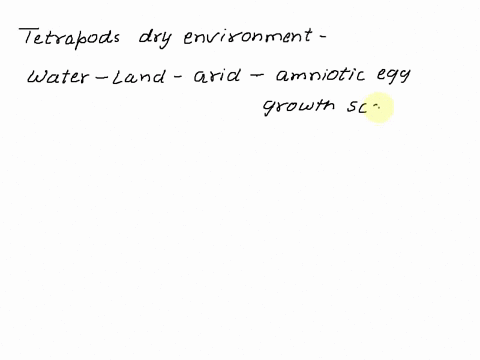 Tetrapods dry environment -
Water - Land - arid - amniotic egg
growth sc